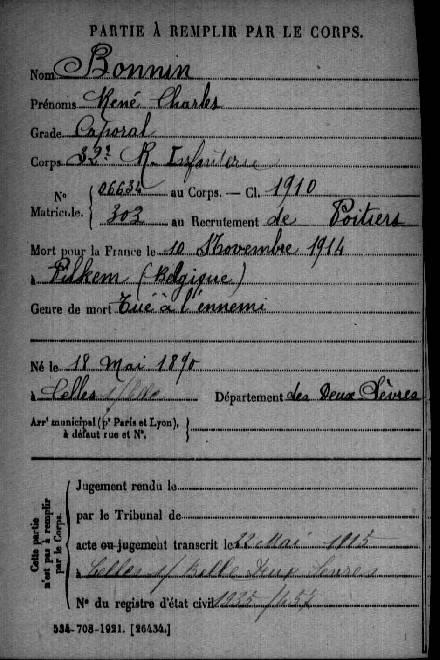 PARTIE À REMPLIR PAR LE CORPS.
Nom Bonnin
Prénoms René Charles
Grade Caporal
Corps 32e R. Infanterie
No Matricule. { 06634 au Corps. — Cl. 1910
303 au Recrutement de Poitiers
Mort pour la France le 10 Novembre 1914
à Pilkem (Belgique)
Genre de mort Tué à l'ennemi
Né le 18 Mai 1890
à Celles Département des Deux Sèvres
Arrt municipal (pr Paris et Lyon),
à défaut rue et No.
Cette partie n'est pas à remplir par le Corps.
Jugement rendu le
par le Tribunal de
acte ou jugement transcrit le 22 Mai 1915
à Celles s/ Belle Deux Sèvres
No du registre d'état civil
534-708-1921. [26434.]